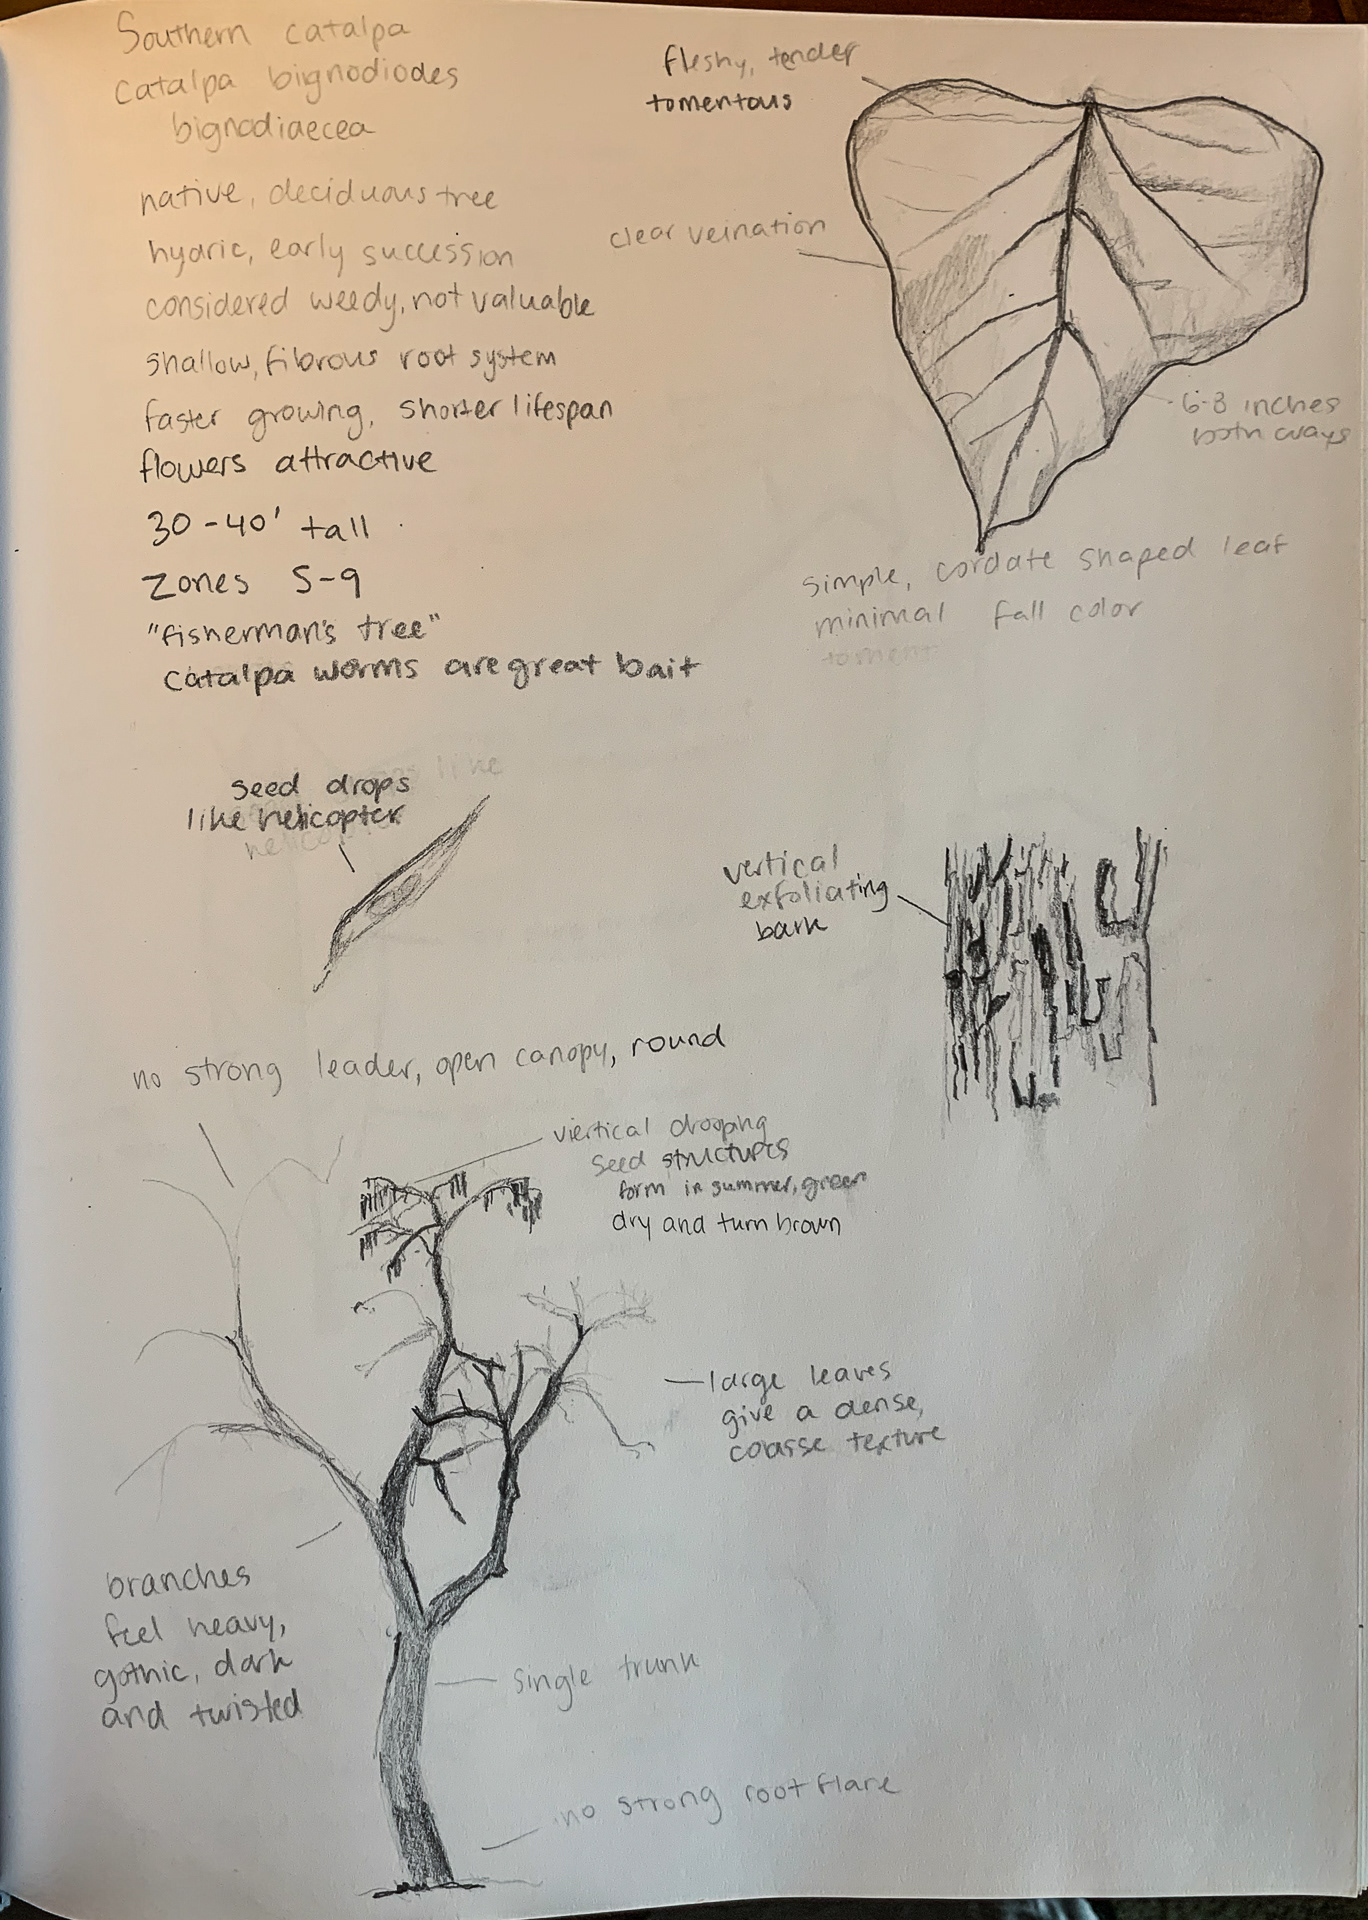 Southern catalpa
Catalpa bignodiodes
bignodiaecea
native, deciduous tree
hydric, early succession
considered weedy, not valuable
shallow, fibrous root system
faster growing, shorter lifespan
flowers attractive
30-40' tall
Zones 5-9
"fisherman's tree"
catalpa worms are great bait
fleshy, tender
tomentous
clear veination
6-8 inches
both ways
simple, cordate shaped leaf
minimal fall color
toment
seed drops
like helicopter
vertical
exfoliating
bark
no strong leader, open canopy, round
viertical drooping
seed structures
form in summer, green
dry and turn brown
large leaves
give a dense,
coarse texture
branches
feel heavy,
gothic, dark
and twisted
single trunk
no strong root flare